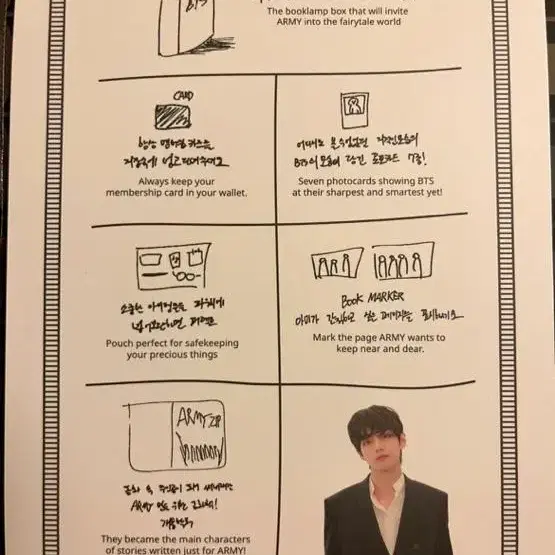 BTS
The booklamp box that will invite
ARMY into the fairytale world
CARD
항상 멤버쉽 카드는
지갑속에 넣고 다녀주세요
Always keep your
membership card in your wallet.
BTS의 모습이 담긴 포토카드 7종!
Seven photocards showing BTS
at their sharpest and smartest yet!
소중한
Pouch perfect for safekeeping
your precious things
BOOK MARKER
아미가 간직하고 싶은 페이지를
Mark the page ARMY wants to
keep near and dear.
ARMY ZIP
동화 속 주인공이 돼
ARMY
They became the main characters
of stories written just for ARMY!